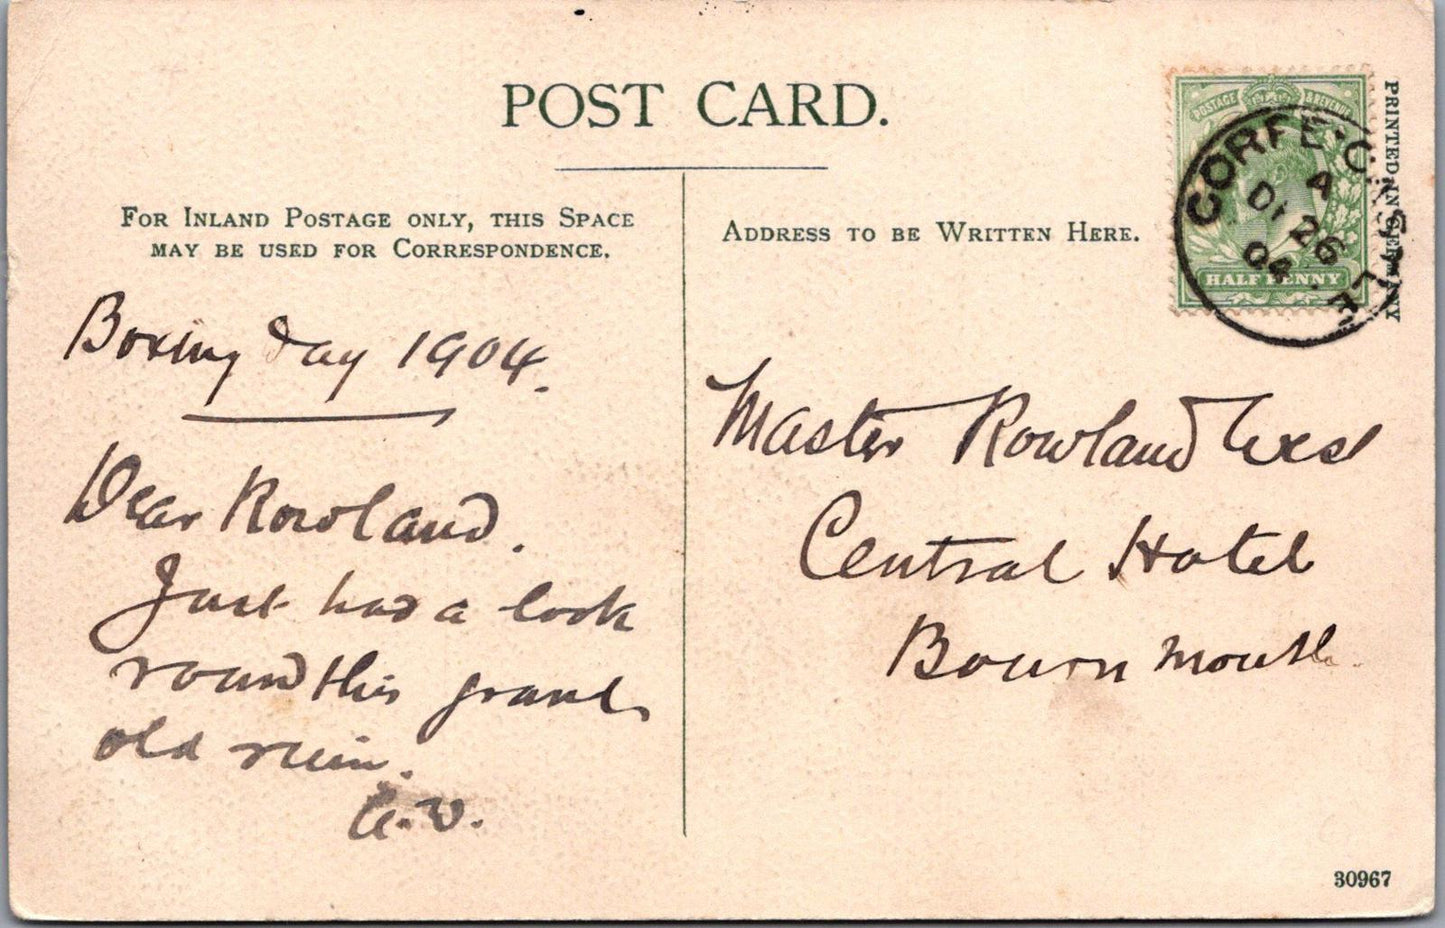 POST CARD.
FOR INLAND POSTAGE ONLY, THIS SPACE
MAY BE USED FOR CORRESPONDENCE.
ADDRESS TO BE WRITTEN HERE.
POSTAGE & REVENUE
HALF PENNY
CORFE·CASTLE
A
DE 26
04
PRINTED IN GERMANY
Boxing Day 1904.
Dear Rowland.
Just had a look
round this grand
old ruin.
Master Rowland West
Central Hotel
Bournmouth.
30967